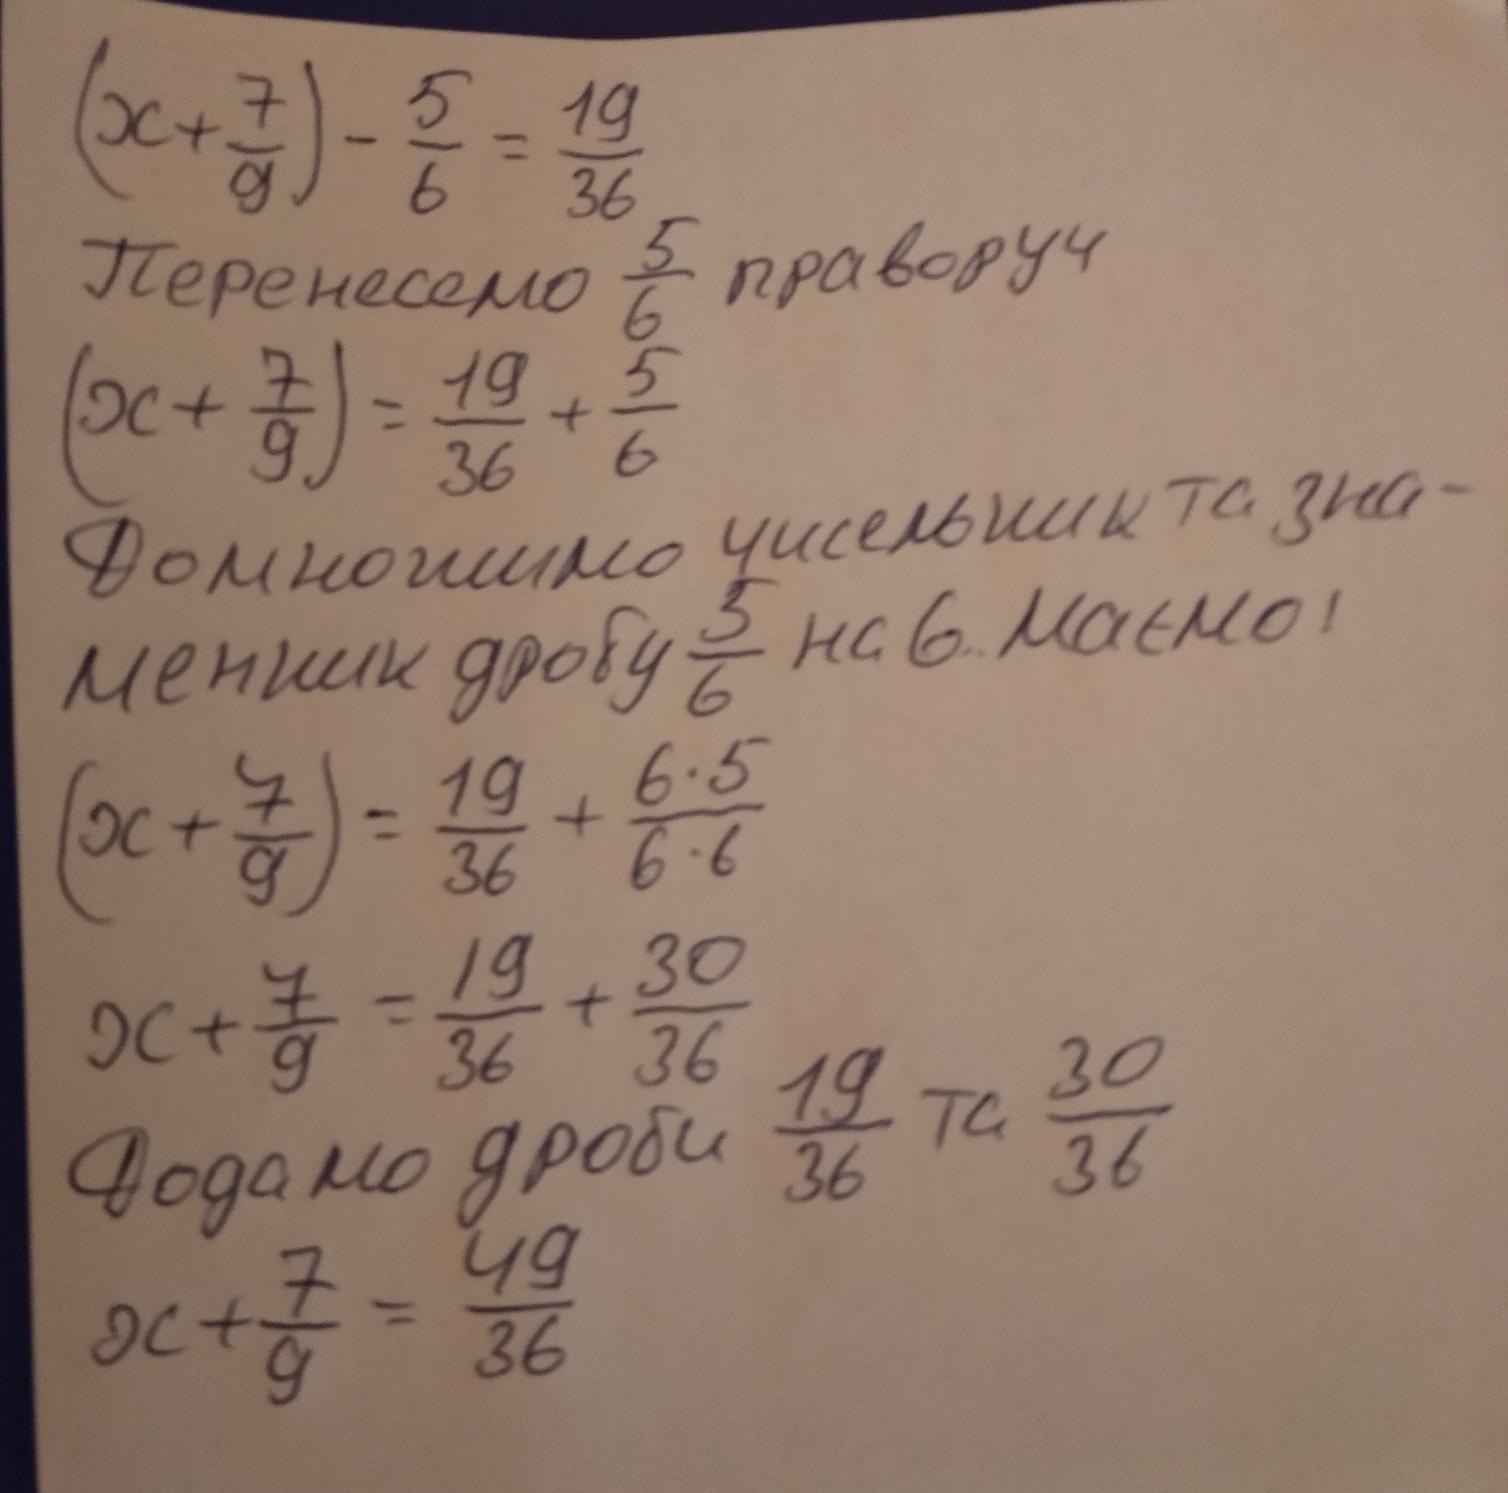 (x + 7/9) - 5/6 = 19/36
Перенесемо 5/6 праворуч
(x + 7/9) = 19/36 + 5/6
Домножимо чисельник та зна-
менник дробу 5/6 на 6. Маємо:
(x + 7/9) = 19/36 + 6·5/6·6
x + 7/9 = 19/36 + 30/36
Додамо дроби 19/36 та 30/36
x + 7/9 = 49/36